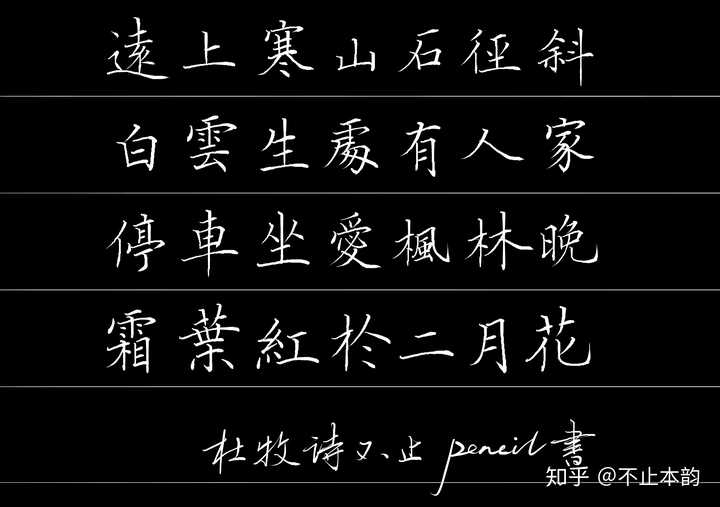 遠上寒山石徑斜
白雲生處有人家
停車坐愛楓林晚
霜葉紅於二月花
杜牧诗又止 pencil 書
知乎 @不止本韵